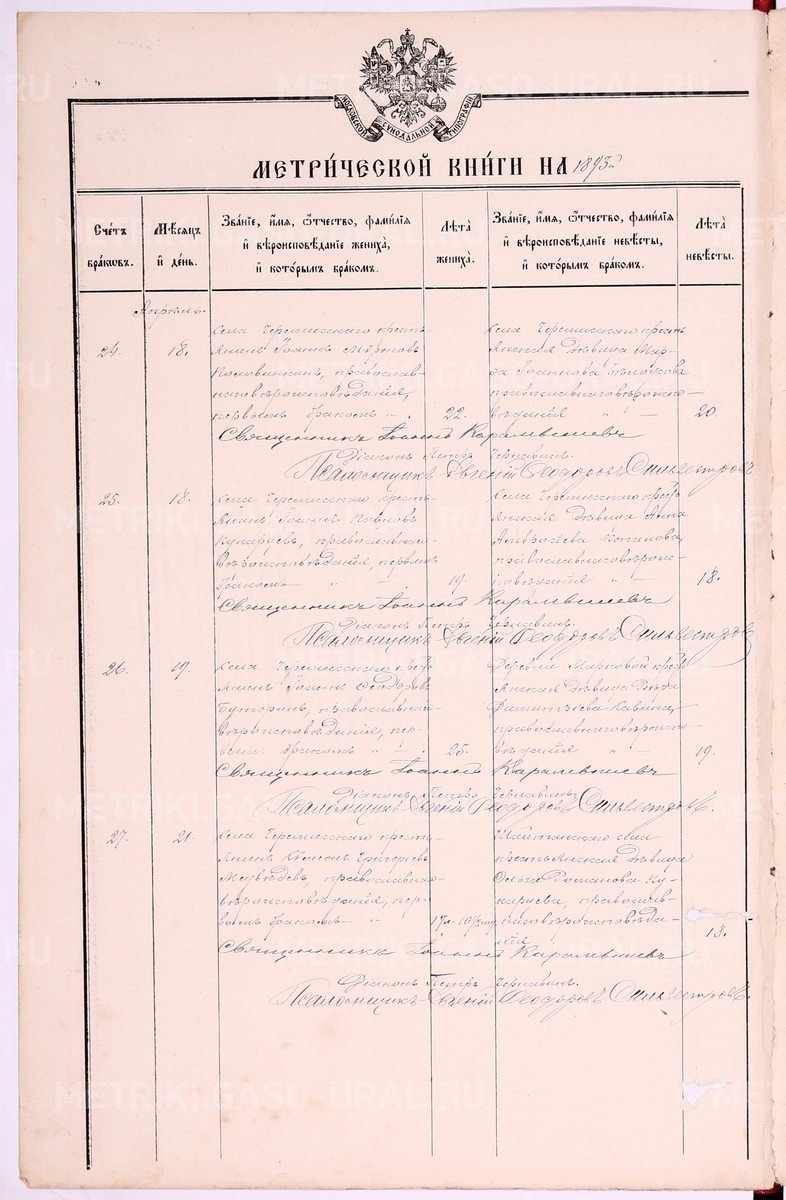 МОСКОВСКОЙ СѴНОДАЛЬНОЙ ТИПОГРАФІИ
МЕТРИ́ЧЕСКОЙ КНИ́ГИ НА 1893 г.
Сче́тъ бра́кѡвъ.
Мѣ́сѧцъ и҆ де́нь.
Зва́нїе, и҆́мѧ, ѻ҆́тчество, фами́лїѧ и҆ вѣроисповѣ́данїе жениха̀, и҆ кото́рымъ бра́комъ.
Лѣта̀ жениха̀.
Зва́нїе, и҆́мѧ, ѻ҆́тчество, фами́лїѧ и҆ вѣроисповѣ́данїе невѣ́сты, и҆ кото́рымъ бра́комъ.
Лѣта̀ невѣ́сты.
Апрѣль.
24.
18.
Села Черемисскаго кресть-
янинъ Іоаннъ Мѵроновъ
православ-
наго вѣроисповѣданія,
первымъ бракомъ " .
22.
Села Черемисскаго кресть
янская дѣвица Мар-
ѳа Іоаннова
православнаго вѣроиспо-
вѣданія " —
20.
Священникъ Іоаннъ Карамышевъ
Діаконъ Петръ Чернавинъ.
Псаломщикъ Евгеній Ѳеодоровъ Сильвестровъ
25.
18.
Села Черемисскаго кресть-
янинъ Іоаннъ Павловъ
Кукарцевъ, православнаго
вѣроисповѣданія, первымъ
бракомъ " — .
19.
Села Черемисскаго крест
янская дѣвица Анна
Амвросіева Копалова
православнаго вѣроис-
повѣданія " —
18.
Священникъ Іоаннъ Карамышевъ
Діаконъ Петръ Чернавинъ.
Псаломщикъ Евгеній Ѳеодоровъ Сильвестровъ
26.
19.
Села Черемисскаго крест
янинъ Іоаннъ Ѳеодоровъ
Буторинъ, православнаго
вѣроисповѣданія, пер-
вымъ бракомъ " — .
25.
Деревни Марковой крест
янская дѣвица
православнаго вѣроиспо-
вѣданія " —
19.
Священникъ Іоаннъ Карамышевъ
Діаконъ Петръ Чернавинъ.
Псаломщикъ Евгеній Ѳеодоровъ Сильвестровъ.
27.
21.
Села Черемисскаго кресть-
янинъ Сѵмеонъ Григорьевъ
Медвѣдевъ, православнаго
вѣроисповѣданія, пер-
вымъ бракомъ "
17л. 10½ мѣс.
Шайтанскаго села
крестьянская дѣвица
Ольга Романова Ку-
карцева, православ-
наго вѣроисповѣда-
нія
18.
Священникъ Іоаннъ Карамышевъ
Діаконъ Петръ Чернавинъ.
Псаломщикъ Евгеній Ѳеодоровъ Сильвестровъ.
METRIKI.GASO-URAL.RU